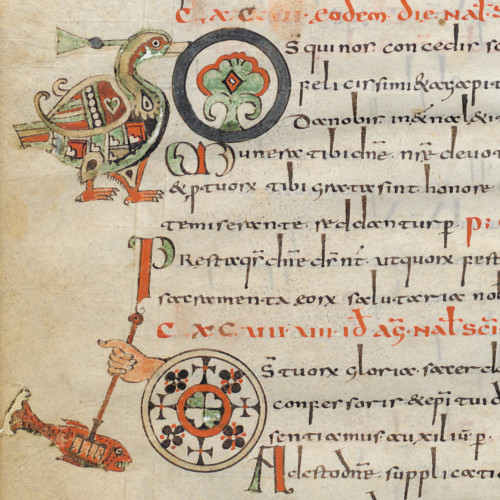 eodem die nat s
Ds qui nos concedis sc
felicissimi & agapit
Da nobis in &
Munera tibi dne nrae deuot
& p tuorx tibi grata sint honore
te miserante sed dantur p
Prestaqs dne ut quorx fest
sacramenta eorx salutaria nob
C x C viii viii id ag nat sci
Ds tuorx gloriae sacerd
confessoris & epi tui d
sentiamus auxilium p
Adesto dne supplicati